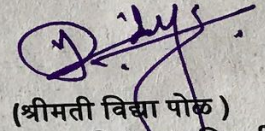 (श्रीमती विद्या पोळ )